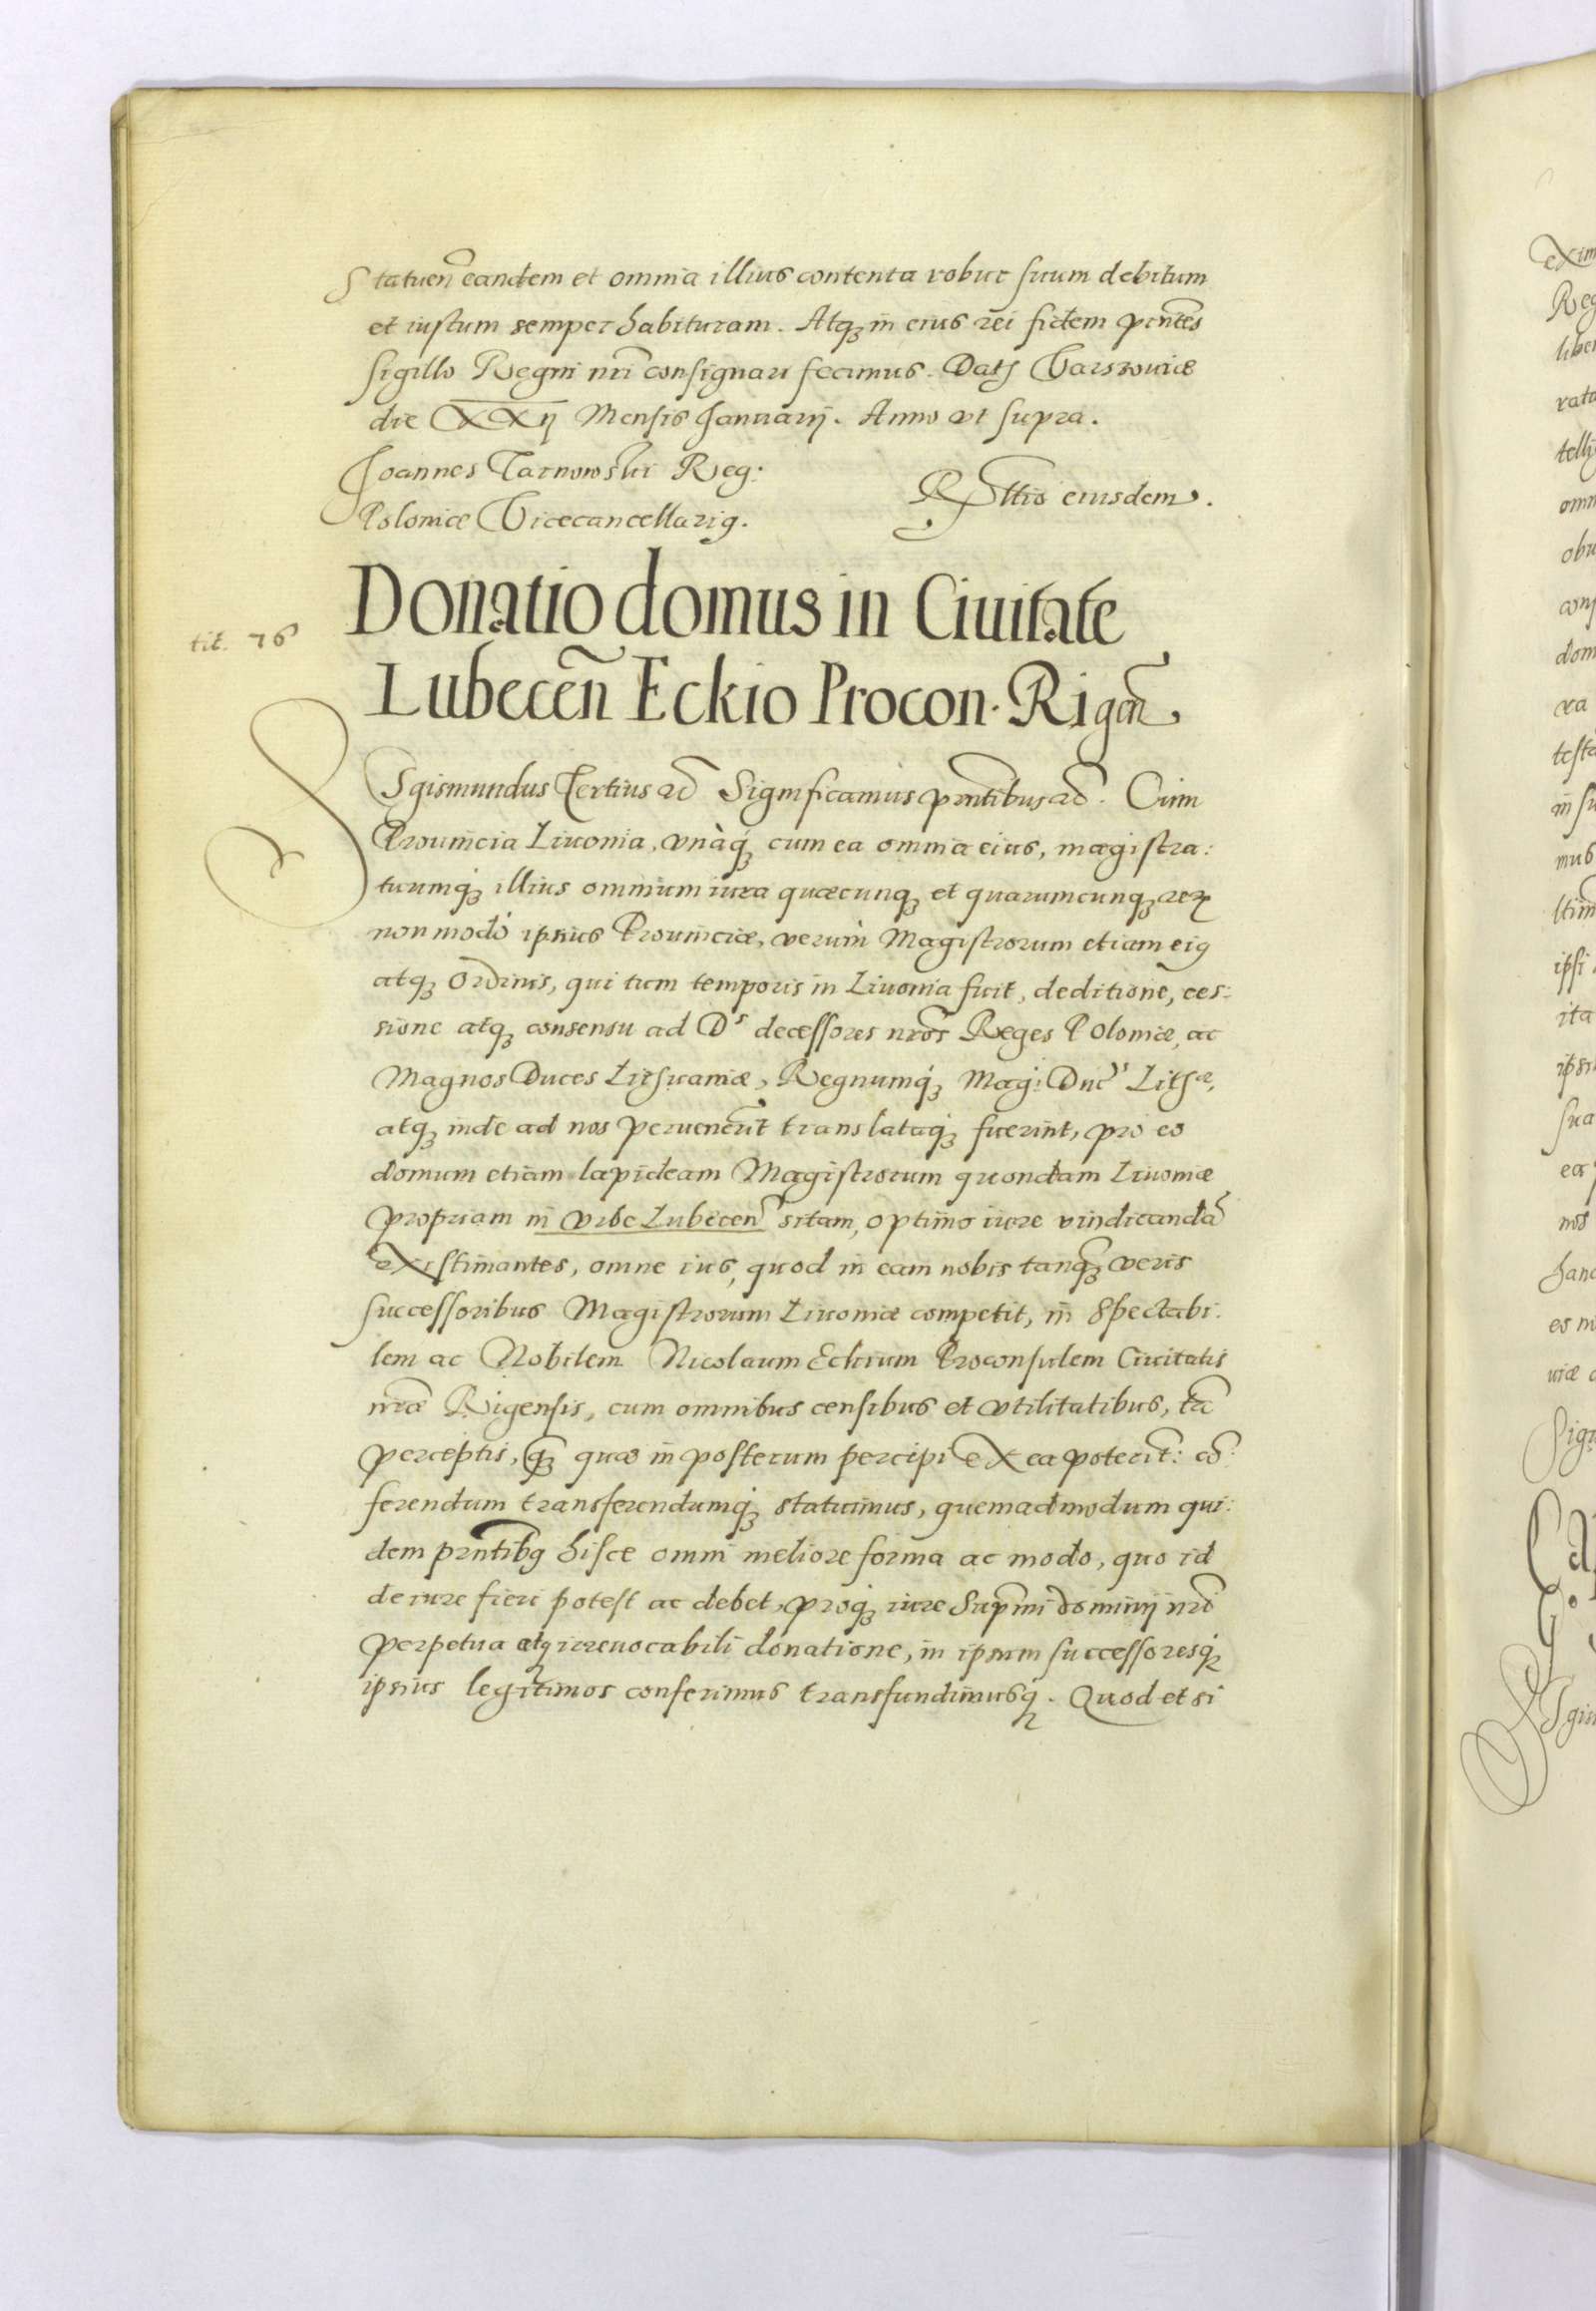 Statuen̄ eandem et omnia illius contenta robur suum debitum
et iustum semper habituram. Atq; in eius rei fidem pr̄ntes
sigillo Regni nr̄i consignari fecimus. Dat; Varsouiæ
die XXij Mensis Januarij. Anno vt supra.
Joannes Tarnowski Reg:
Poloniæ Vicecancellarig.
R̄llio eiusdem.
Donatio domus in Ciuitate
Lubecen̄ Eckio Procon. Rigen̄
tit. 76
Sgismundus Tertius ec̄ Significamus pr̄ntibus ec̄. Cum
Prouincia Liuonia, vnàq; cum ea omnia eius, magistra:
tuumq; illius omnium iura quæcunq; et quarumcunq; reꝝ
non modò ipsius Prouinciæ, verum Magistrorum etiam eig
atq; Ordinis, qui tum temporis in Liuonia fuit, deditione, ces:
sione atq; consensu ad Ds decessores nr̄os Reges Poloniæ, ac
Magnos Duces Lithuaniæ, Regnumq; Mag: Duc' Lithæ,
atq; inde ad nos peruener̄it translataq; fuerint, pro eo
domum etiam lapideam Magistrorum quondam Liuoniæ
propriam in vrbe Lubecen̄ sitam, optimo iure vindicandā
existimantes, omne ius, quod in eam nobis tanq; veris
successoribus Magistrorum Liuoniæ competit, in Spectabi:
lem ac Nobilem Nicolaum Eckium Proconsulem Ciuitatis
nr̄æ Rigensis, cum omnibus censibus et vtilitatibus, tā
perceptis, q̄; quæ in posterum percipi ex ea poterit̄: cō:
ferendum transferendumq; statuimus, quemadmodum qui:
dem pr̄ntibg hisce omni meliore forma ac modo, quo id
de iure fieri potest ac debet, proq; iure Supr̄mi dominij nr̄i
perpetua atq; irreuocabili donatione, in ipsum successoresq;
ipsius legitimos conferimus transfundimusq;. Quod et si